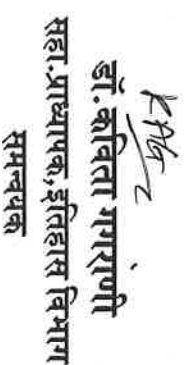 डॉ.कविता मगरांणी
सहा.प्राध्यापक,इतिहास विभाग
समन्वयक